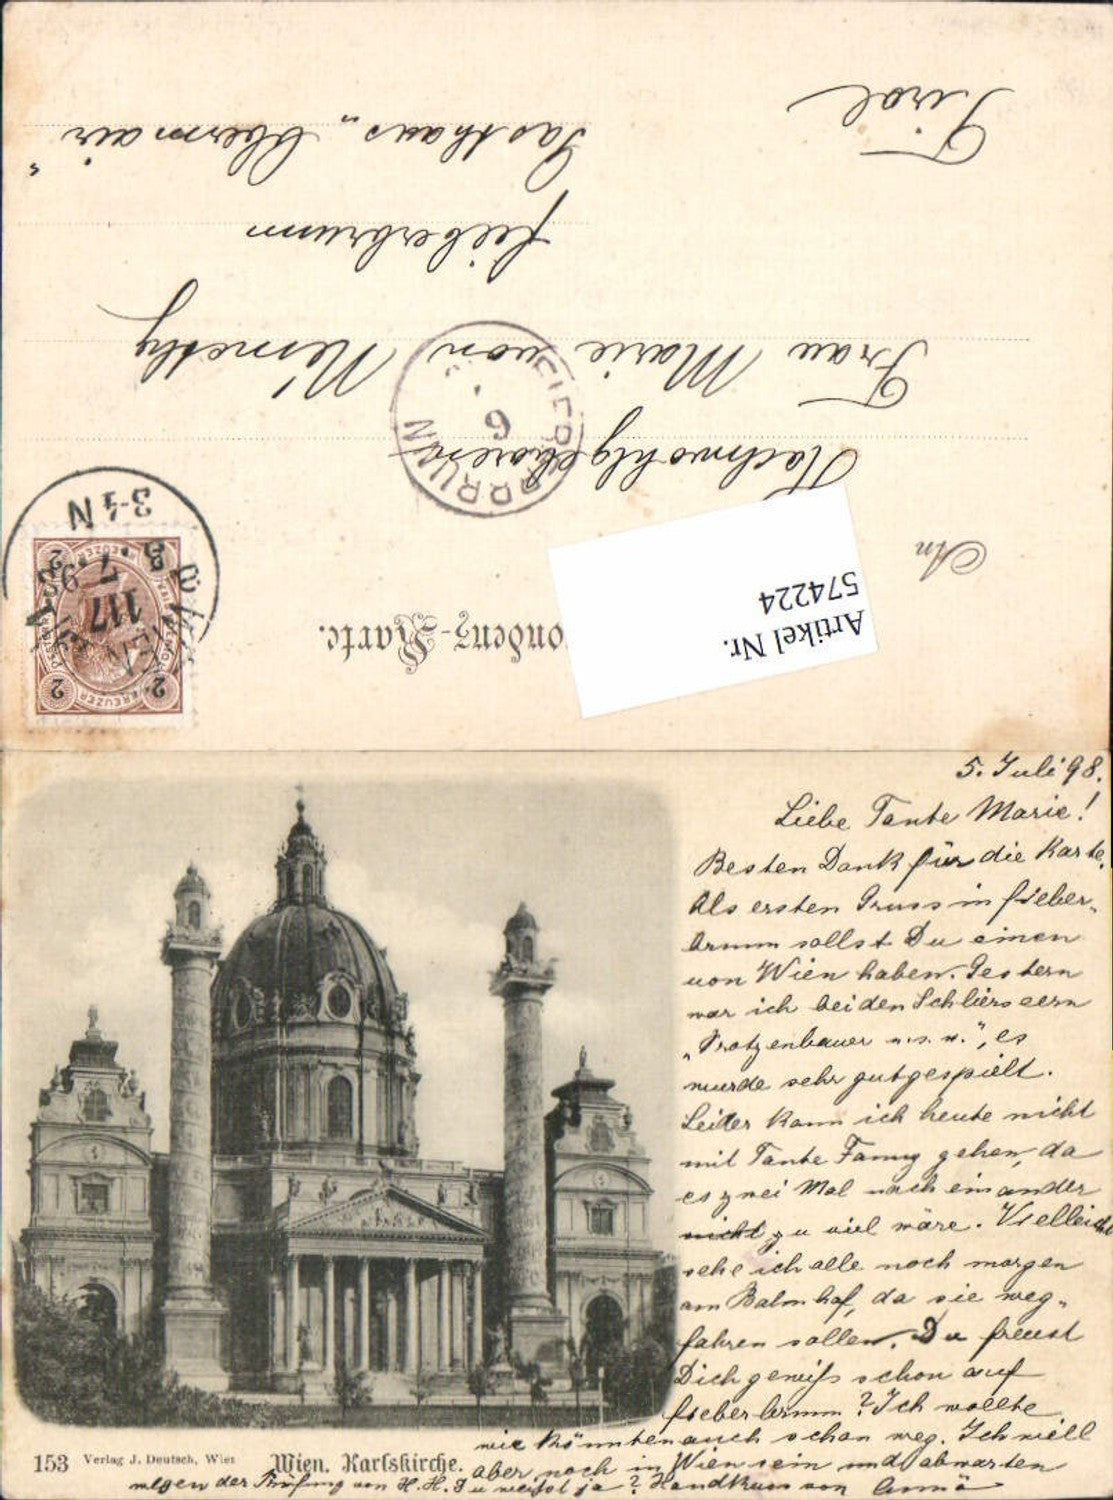 Correspondenz-Karte.
Artikel Nr.
574224
An
Hochwohlgeboren
Frau Marie von Némethy
Fieberbrunn
Gasthaus „Obermair“
Tirol
FIEBERBRUNN
6
WIEN
117
7 98
3-4 N
2 KREUZER 2
5. Juli 98.
Liebe Tante Marie!
Besten Dank für die Karte.
Als ersten Gruss in Fieber-
brunn sollst Du einen
von Wien haben. Gestern
war ich bei den Schlierseern
„Protzenbauer u. s. w.“, es
wurde sehr gut gespielt.
Leider kann ich heute nicht
mit Tante Fanny gehen, da
es zwei Mal nach einander
nicht zu viel wäre. Vielleicht
sehe ich alle noch morgen
am Bahnhof, da sie weg-
fahren sollen. Du freust
Dich gewiss schon auf
Fieberbrunn? Ich wollte
wir könnten auch schon weg. Ich will
aber noch in Wien sein und abwarten
wegen der Prüfung von H. H. Du weisst ja? Handkuss von
153 Verlag J. Deutsch, Wien
Wien. Karlskirche.